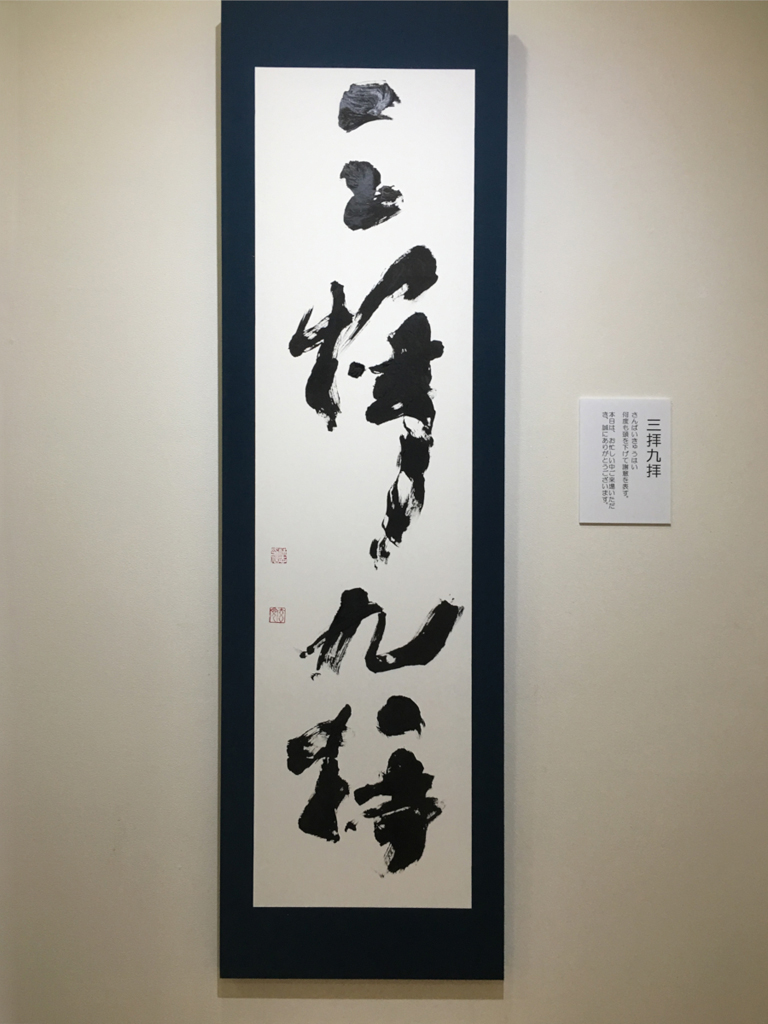 三拝九拝
三拝九拝
さんぱいきゅうはい
何度も頭を下げて謝意を表す。
本日は、お忙しい中ご来場いただ
き、誠にありがとうございます。